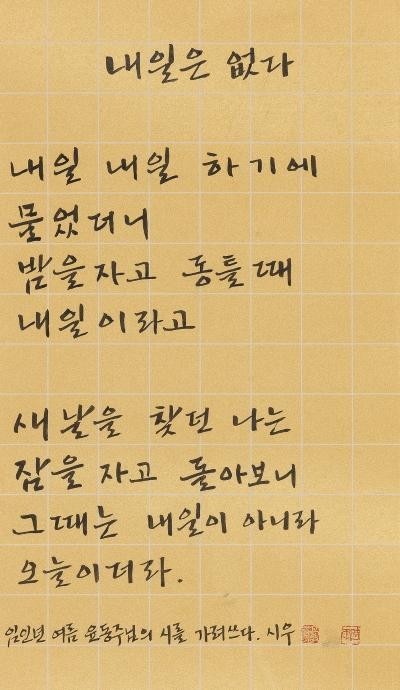 내일은 없다
내일 내일 하기에
물었더니
밤을 자고 동틀때
내일이라고
새날을 찾던 나는
잠을 자고 돌아보니
그때는 내일이 아니라
오늘이더라.
임인년 여름 윤동주님의 시를 가려쓰다. 시우